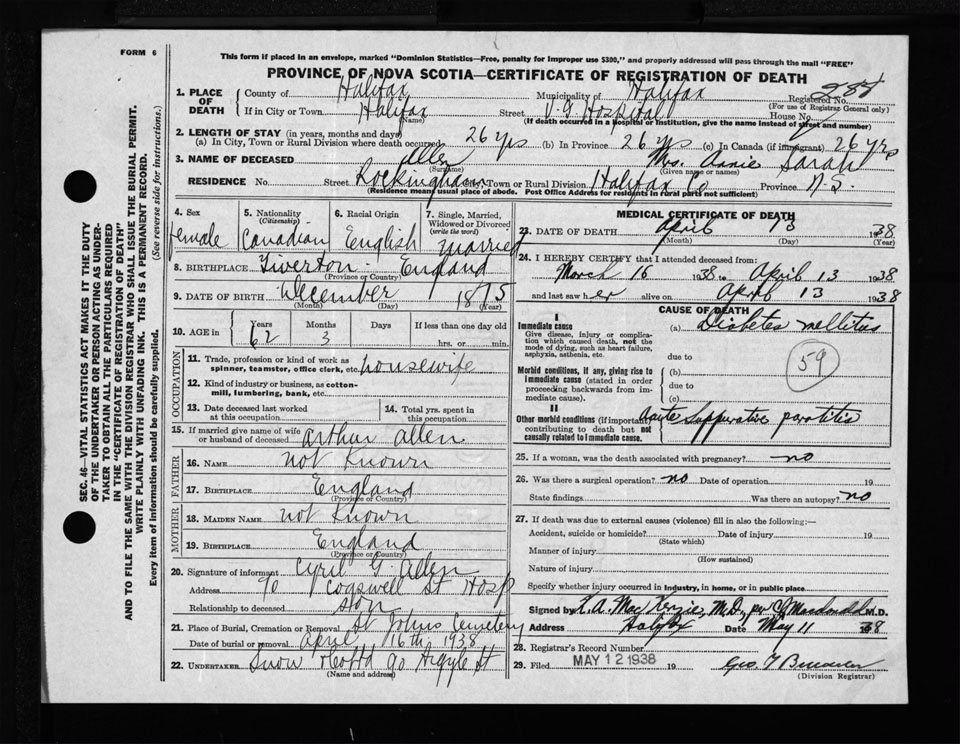 FORM 6
This form if placed in an envelope, marked "Dominion Statistics—Free, penalty for improper use $300," and properly addressed will pass through the mail "FREE"
PROVINCE OF NOVA SCOTIA—CERTIFICATE OF REGISTRATION OF DEATH
1. PLACE OF DEATH County of Halifax Municipality of Halifax Registered No. 284
(For use of Registrar General only)
If in City or Town Halifax Street V.G Hospital House No.
(Name) (If death occurred in a hospital or institution, give the name instead of street and number)
2. LENGTH OF STAY (in years, months and days)
(a) In City, Town or Rural Division where death occurred 26 yrs (b) In Province 26 yrs (c) In Canada (if immigrant) 26 yrs
3. NAME OF DECEASED Allen Mrs. Annie Sarah
(Surname) (Given name or names)
RESIDENCE No. Street Rockingham City, Town or Rural Division Halifax Co Province N.S.
(Residence means usual place of abode. Post Office Address for residents in rural parts not sufficient)
4. Sex female
5. Nationality (Citizenship) Canadian
6. Racial Origin English
7. Single, Married, Widowed or Divorced (write the word) Married
8. BIRTHPLACE Tiverton England
(Province or Country)
9. DATE OF BIRTH December 1875
(Month) (Day) (Year)
10. AGE in Years 62 Months 3 Days If less than one day old hrs. or min.
OCCUPATION
11. Trade, profession or kind of work as spinner, teamster, office clerk, etc. housewife
12. Kind of industry or business, as cotton-mill, lumbering, bank, etc.
13. Date deceased last worked at this occupation
14. Total yrs. spent in this occupation
15. If married give name of wife or husband of deceased Arthur Allen
FATHER
16. NAME not Known
17. BIRTHPLACE England
(Province or Country)
MOTHER
18. MAIDEN NAME not Known
19. BIRTHPLACE England
(Province or Country)
20. Signature of informant Cyril G. Allen
Address 90 Cogswell St Hosp
Relationship to deceased son
21. Place of Burial, Cremation or Removal St Johns Cemetery
Date of burial or removal April 16th 1938
22. UNDERTAKER Snow 90 Argyle St
(Name and address)
MEDICAL CERTIFICATE OF DEATH
23. DATE OF DEATH April 13 1938
(Month) (Day) (Year)
24. I HEREBY CERTIFY that I attended deceased from:
March 16 1938 to April 13 1938
and last saw her alive on April 13 1938
CAUSE OF DEATH
I
Immediate cause
Give disease, injury or complication which caused death, not the mode of dying, such as heart failure, asphyxia, asthenia, etc.
(a) Diabetes mellitus
due to
59
Morbid conditions, if any, giving rise to immediate cause (stated in order proceeding backwards from immediate cause).
(b)
due to
(c)
II
Other morbid conditions (if important) contributing to death but not causally related to immediate cause.
Acute Suppurative parotitis
25. If a woman, was the death associated with pregnancy? no
26. Was there a surgical operation? no Date of operation 19
State findings Was there an autopsy? no
27. If death was due to external causes (violence) fill in also the following:—
Accident, suicide or homicide? Date of injury 19
(State which)
Manner of injury
(How sustained)
Nature of injury
Specify whether injury occurred in industry, in home, or in public place
Signed by K. A. MacKenzie, M.D. per M.D.
Address Halifax Date May 11 38
28. Registrar's Record Number
29. Filed MAY 12 1938 19 Geo. T
(Division Registrar)
SEC. 46—VITAL STATISTICS ACT MAKES IT THE DUTY
OF THE UNDERTAKER OR PERSON ACTING AS UNDER-
TAKER TO OBTAIN ALL THE PARTICULARS REQUIRED
IN THE "CERTIFICATE OF REGISTRATION OF DEATH"
AND TO FILE THE SAME WITH THE DIVISION REGISTRAR WHO SHALL ISSUE THE BURIAL PERMIT.
WRITE PLAINLY WITH UNFADING INK. THIS IS A PERMANENT RECORD.
Every item of information should be carefully supplied. (See reverse side for instructions.)